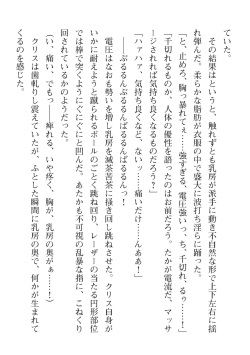 ていた。
　その結果はというと、触れずとも乳房が激しく動き不自然な形で上下左右に揺
れ弾んだ。柔らかな脂肪が衣服の中で盛大に波打ち淫らに踊った。
「と、止めろ、胸っ暴れてぇ……強すぎる、電圧強いっ、ち、千切れ、るっ……！」
「千切れるものか。人体の優性を語ったのはお前だろう。たかが電流だ、マッサ
ージされれば気持ち良くなるものだろう？」
「ハァハァ、気持ち良くなど、ないっ……痛いだけ……んああ！」
――ぶるるんぶるんばるるんばるるんっ！
　電圧はなおも勢いを増し乳房を滅茶苦茶に掻き回し跳ねさせた。クリス自身が
いかに耐えようと蹴られるボールのごとく跳ね回り、レーザーの当たる円形部位
では棒で突くようにぐにぐにと凹んだ。あたかも不可視の乱暴な指に、こねくり
回されているかのようだった。
（い、痛い、でもっ――痺れる、いや疼く、胸が、乳房の奥がぁ……！）
　クリスは歯軋りし震えていたが、ふとした瞬間に乳房の奥で、何かが生まれて
くるのを感じた。